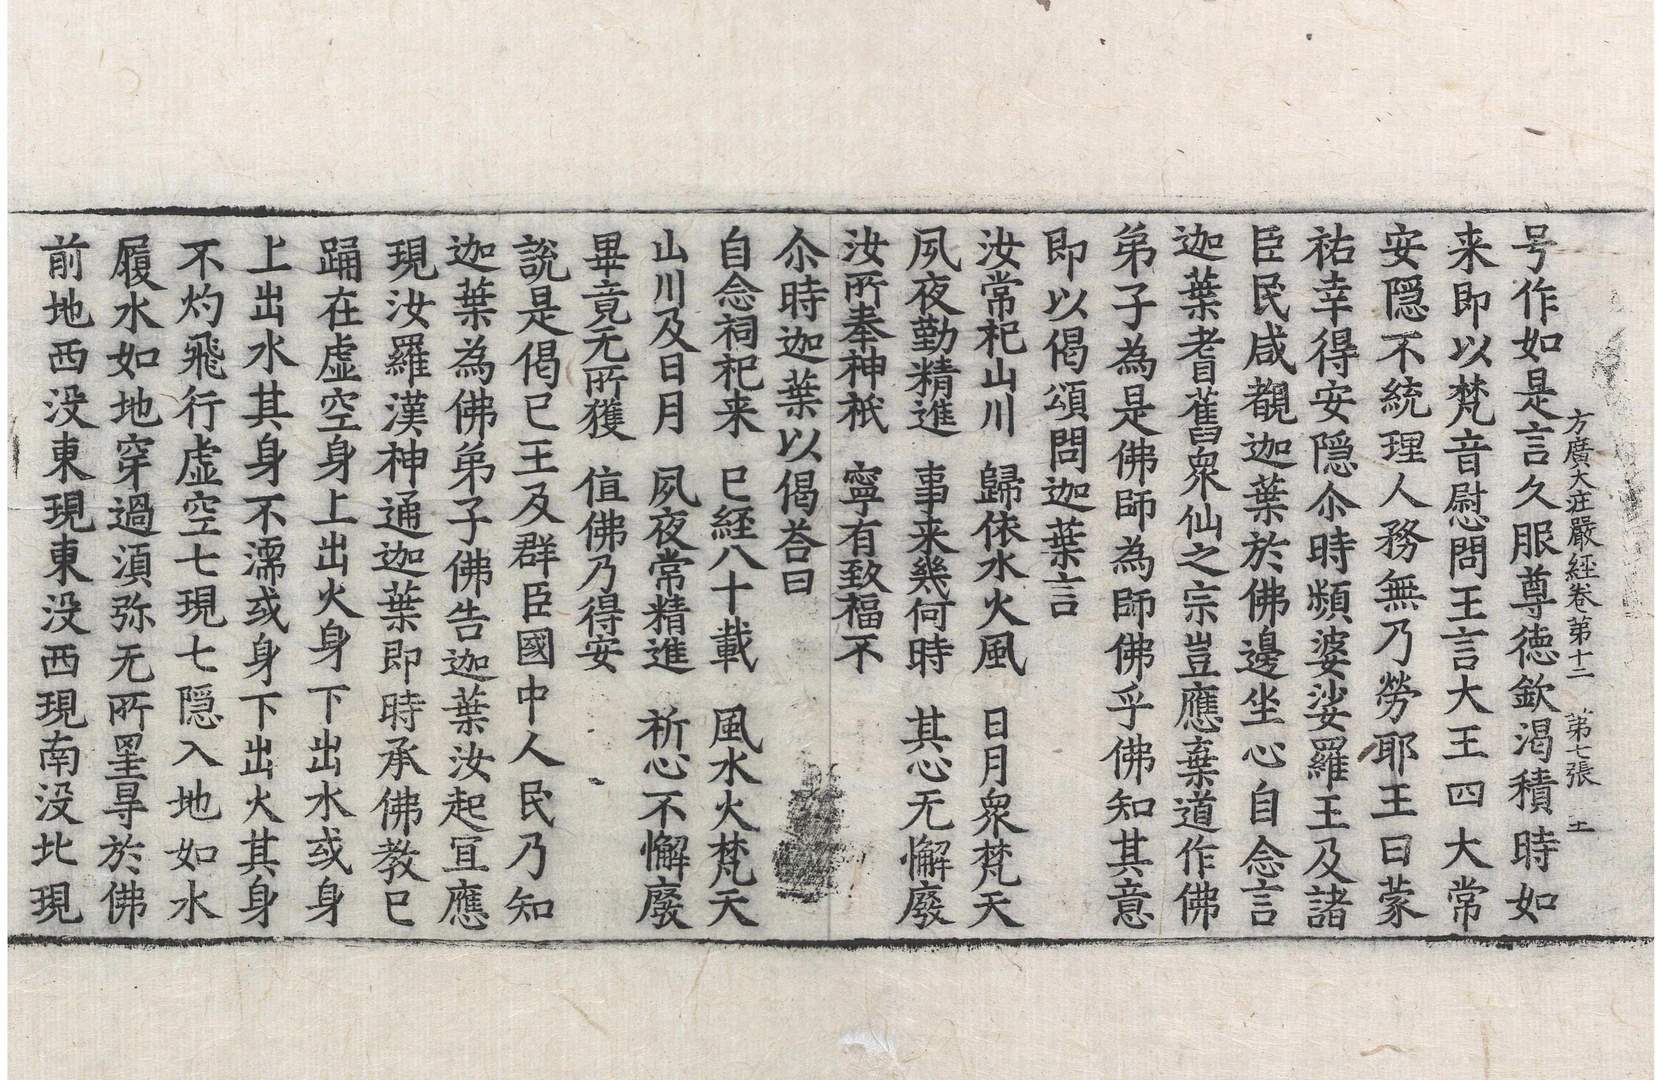 方廣大莊嚴經卷第十二 第七張 王
号作如是言久服尊德欽渴積時如
来即以梵音慰問王言大王四大常
安隠不統理人務無乃勞耶王曰蒙
祐幸得安隠尒時頻婆娑羅王及諸
臣民咸覩迦葉於佛邊坐心自念言
迦葉耆舊衆仙之宗豈應棄道作佛
弟子為是佛師為師佛乎佛知其意
即以偈頌問迦葉言
汝常祀山川 歸依水火風 日月衆梵天
夙夜勤精進 事来幾何時 其心无懈廢
汝所奉神祇 寧有致福不
尒時迦葉以偈荅曰
自念祠祀来 已經八十載 風水火梵天
山川及日月 夙夜常精進 祈心不懈廢
畢竟无所獲 值佛乃得安
說是偈已王及群臣國中人民乃知
迦葉為佛弟子佛告迦葉汝起宜應
現汝羅漢神通迦葉即時承佛教已
踊在虚空身上出火身下出水或身
上出水其身不濡或身下出火其身
不灼飛行虚空七現七隠入地如水
履水如地穿過湏弥无所罣㝵於佛
前地西没東現東没西現南没北現